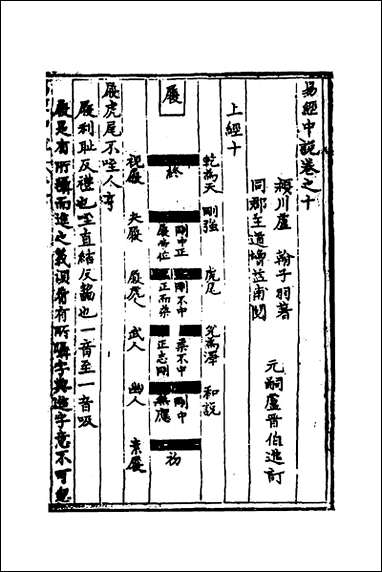 易經中說卷之十
潁川盧 翰子羽著
同郡王道增益甫閱
元嗣盧晋伯進訂
上經十
乾為天 剛強 虎尾 兌為澤 和說
履
終
剛中正
履帝位
剛不中
正而柔
柔不中
正志剛
剛中
無應
初
視履 夬履 履虎 武人 幽人 素履
履虎尾不咥人亨
履利耻反禮也咥直結反齧也一音至一音吸
履是有所躡而進之義須看有所躡字與進字意不可忽